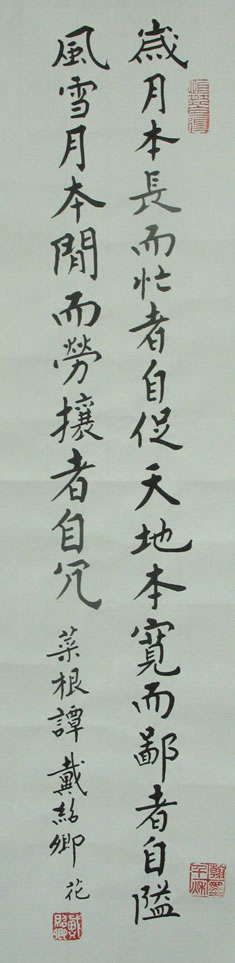 歲月本長而忙者自促天地本寬而鄙者自隘
風雪月本閒而勞攘者自冗 菜根譚 戴紹卿 花